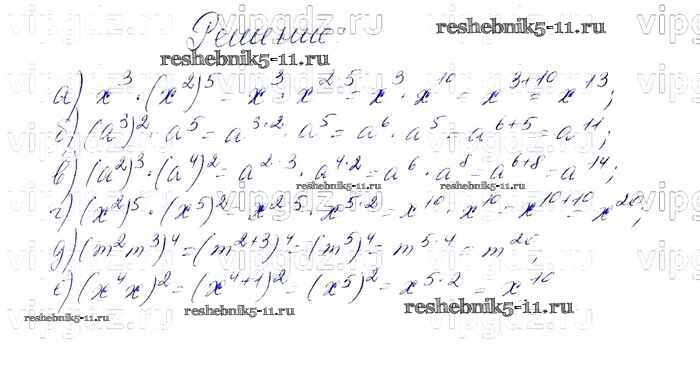 vipgdz.ru vipgdz.ru vipgdz.ru
Решение:
reshebnik5-11.ru
reshebnik5-11.ru
а) x³ · (x²)⁵ = x³ · x²·⁵ = x³ · x¹⁰ = x³⁺¹⁰ = x¹³;
б) (a³)² · a⁵ = a³·² · a⁵ = a⁶ · a⁵ = a⁶⁺⁵ = a¹¹;
в) (a²)³ · (a⁴)² = a²·³ · a⁴·² = a⁶ · a⁸ = a⁶⁺⁸ = a¹⁴;
reshebnik5-11.ru reshebnik5-11.ru
г) (x²)⁵ · (x⁵)² = x²·⁵ · x⁵·² = x¹⁰ · x¹⁰ = x¹⁰⁺¹⁰ = x²⁰;
д) (m²m³)⁴ = (m²⁺³)⁴ = (m⁵)⁴ = m⁵·⁴ = m²⁰;
е) (x⁴x)² = (x⁴⁺¹)² = (x⁵)² = x⁵·² = x¹⁰
reshebnik5-11.ru reshebnik5-11.ru reshebnik5-11.ru